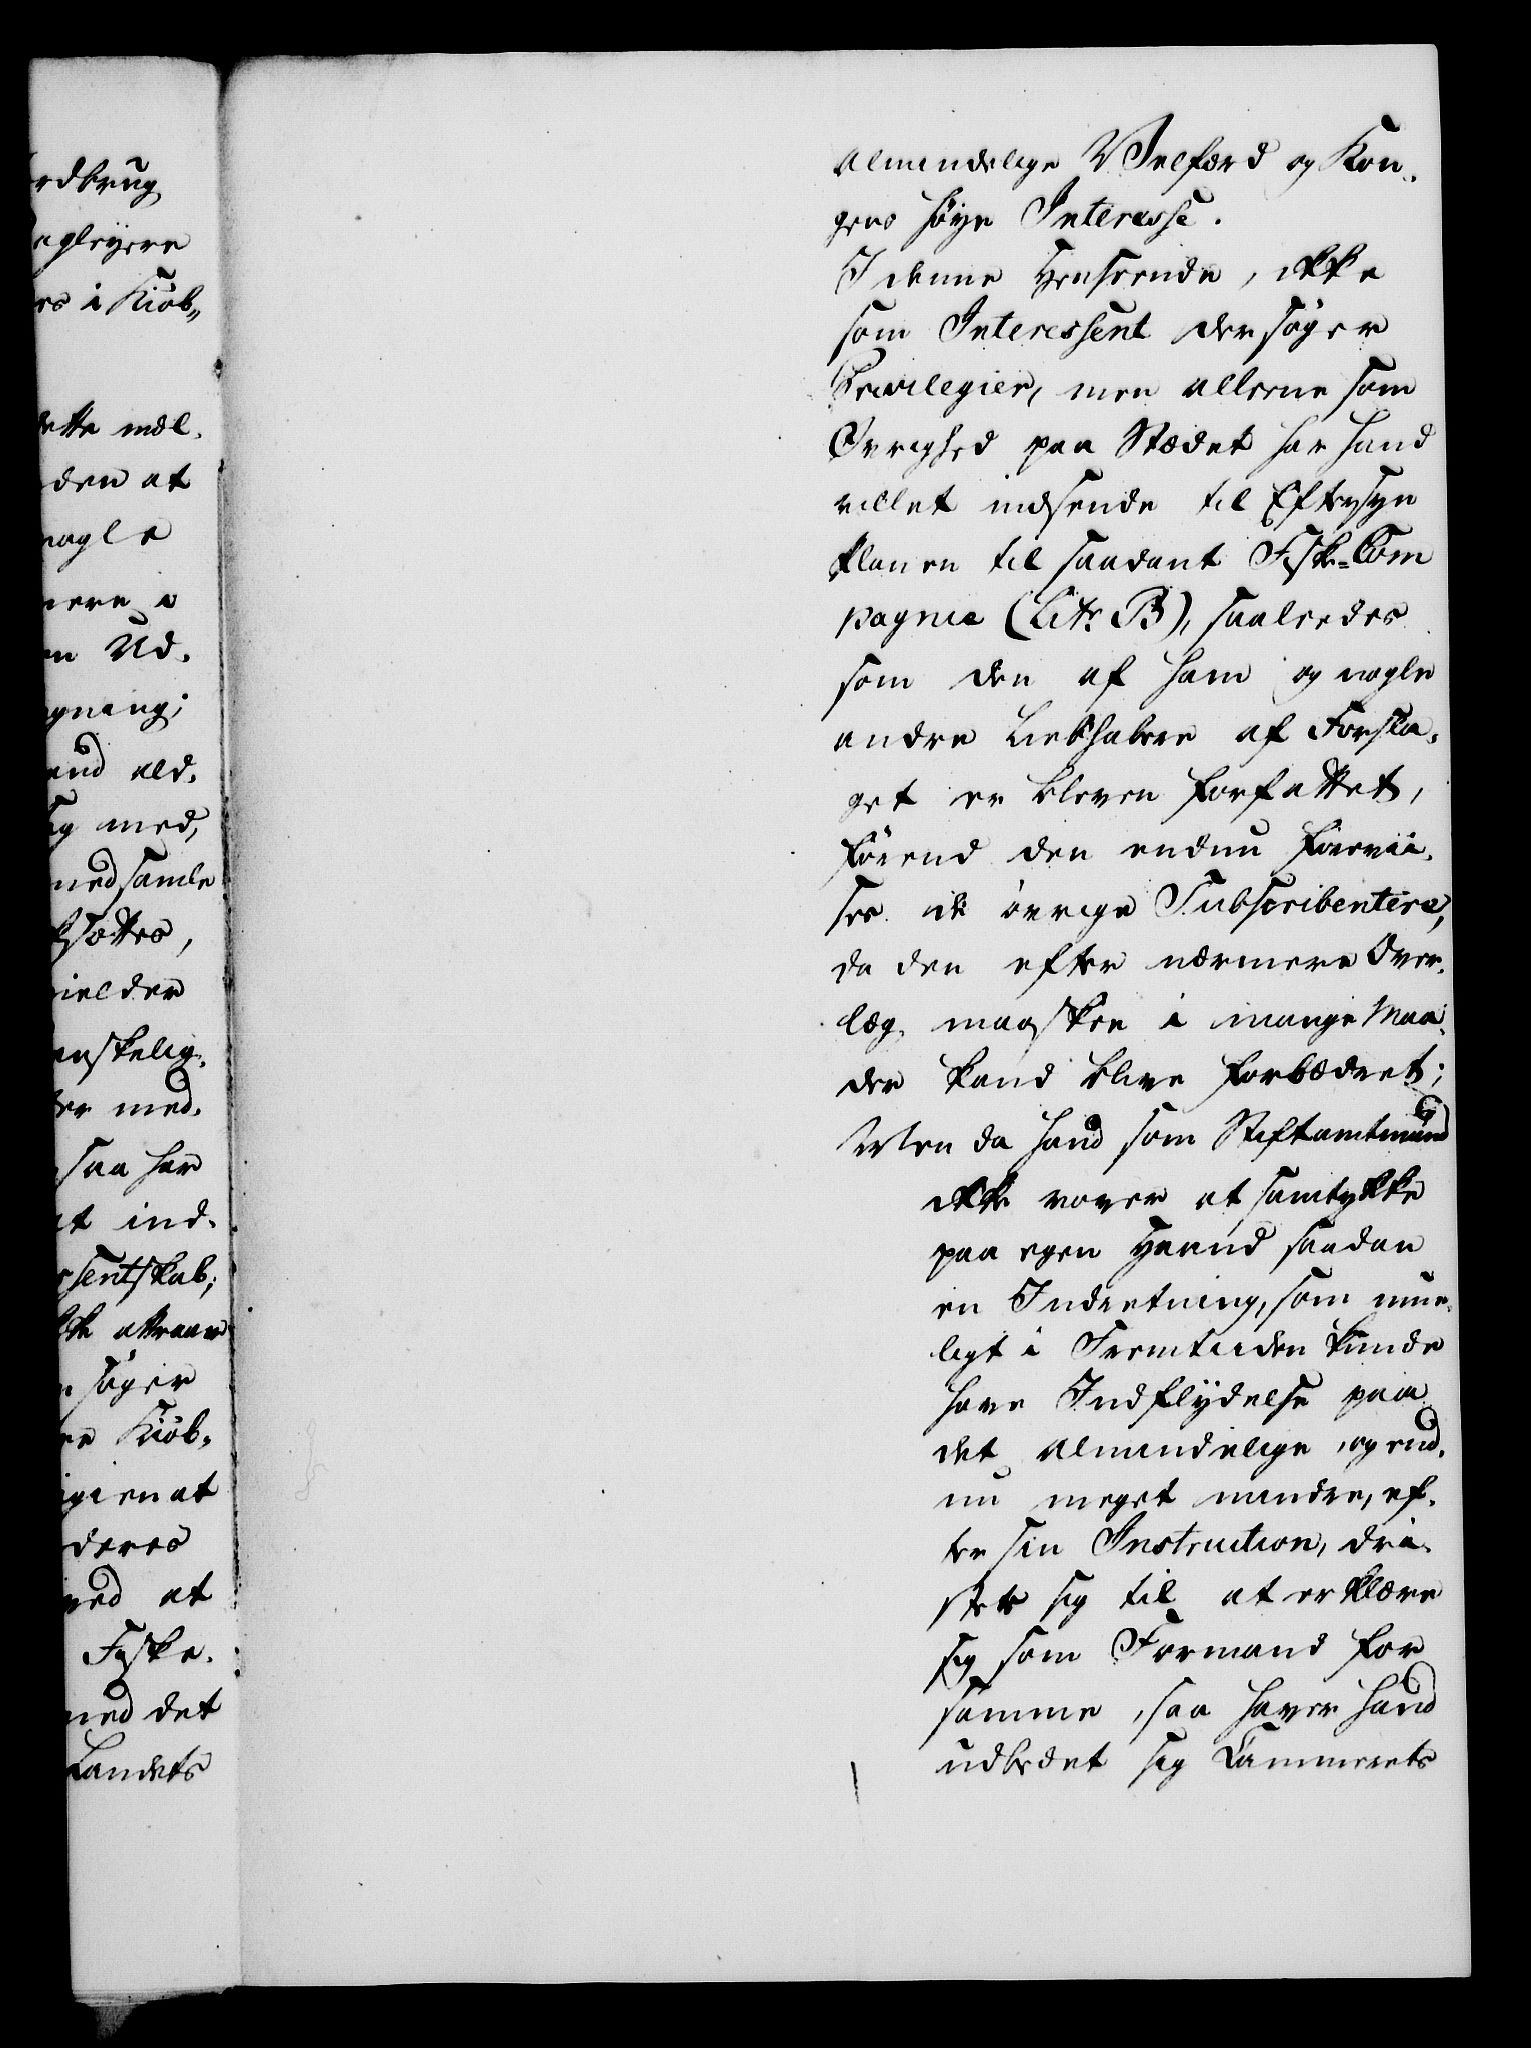 rdbrug
egleyere
es i Kiöb„
dette mæl.
den at
nogle
nere i
en Ud.
gning;
end ald.
ig med,
med samle
sættes,
gielder
anskelig.
ter med.
saa har
at ind.
sentskab;
attraaer
søger
Kiöb.
gien at
deres
ved at
Fiske.
med det
Landets
almindelige Velfærd og Kon.
gens høye Interesse.
I denne Henseende, ikke
som Interessent der søger
Privilegier, men alleene som
Øvrighed paa Stædet har hand
villet indsende til Eftersyn
Planen til saadant Fisk=Com
pagnie (Litr. B), saaledes
som den af ham og nogle
andre Liebhabere af Forsla.
get er bleven forfattet,
förend den endnu forevii.
ses de övrige Subscribentere,
da den efter nærmere Over.
læg maaskee i mange Maa.
der kand blive forbædret;
Men da hand som Stiftamtmand
ikke vover at samtykke
paa egen Haand saadan
en Indretning, som mue.
ligt i Fremtiiden kunde
have Indflÿdelse paa
det almindelige, og end.
nu meget mindre, ef.
ter sin Instruction, dri.
ste sig til at erklære
sig som Formand for
samme, saa haver hand
udbedet sig Cammerets